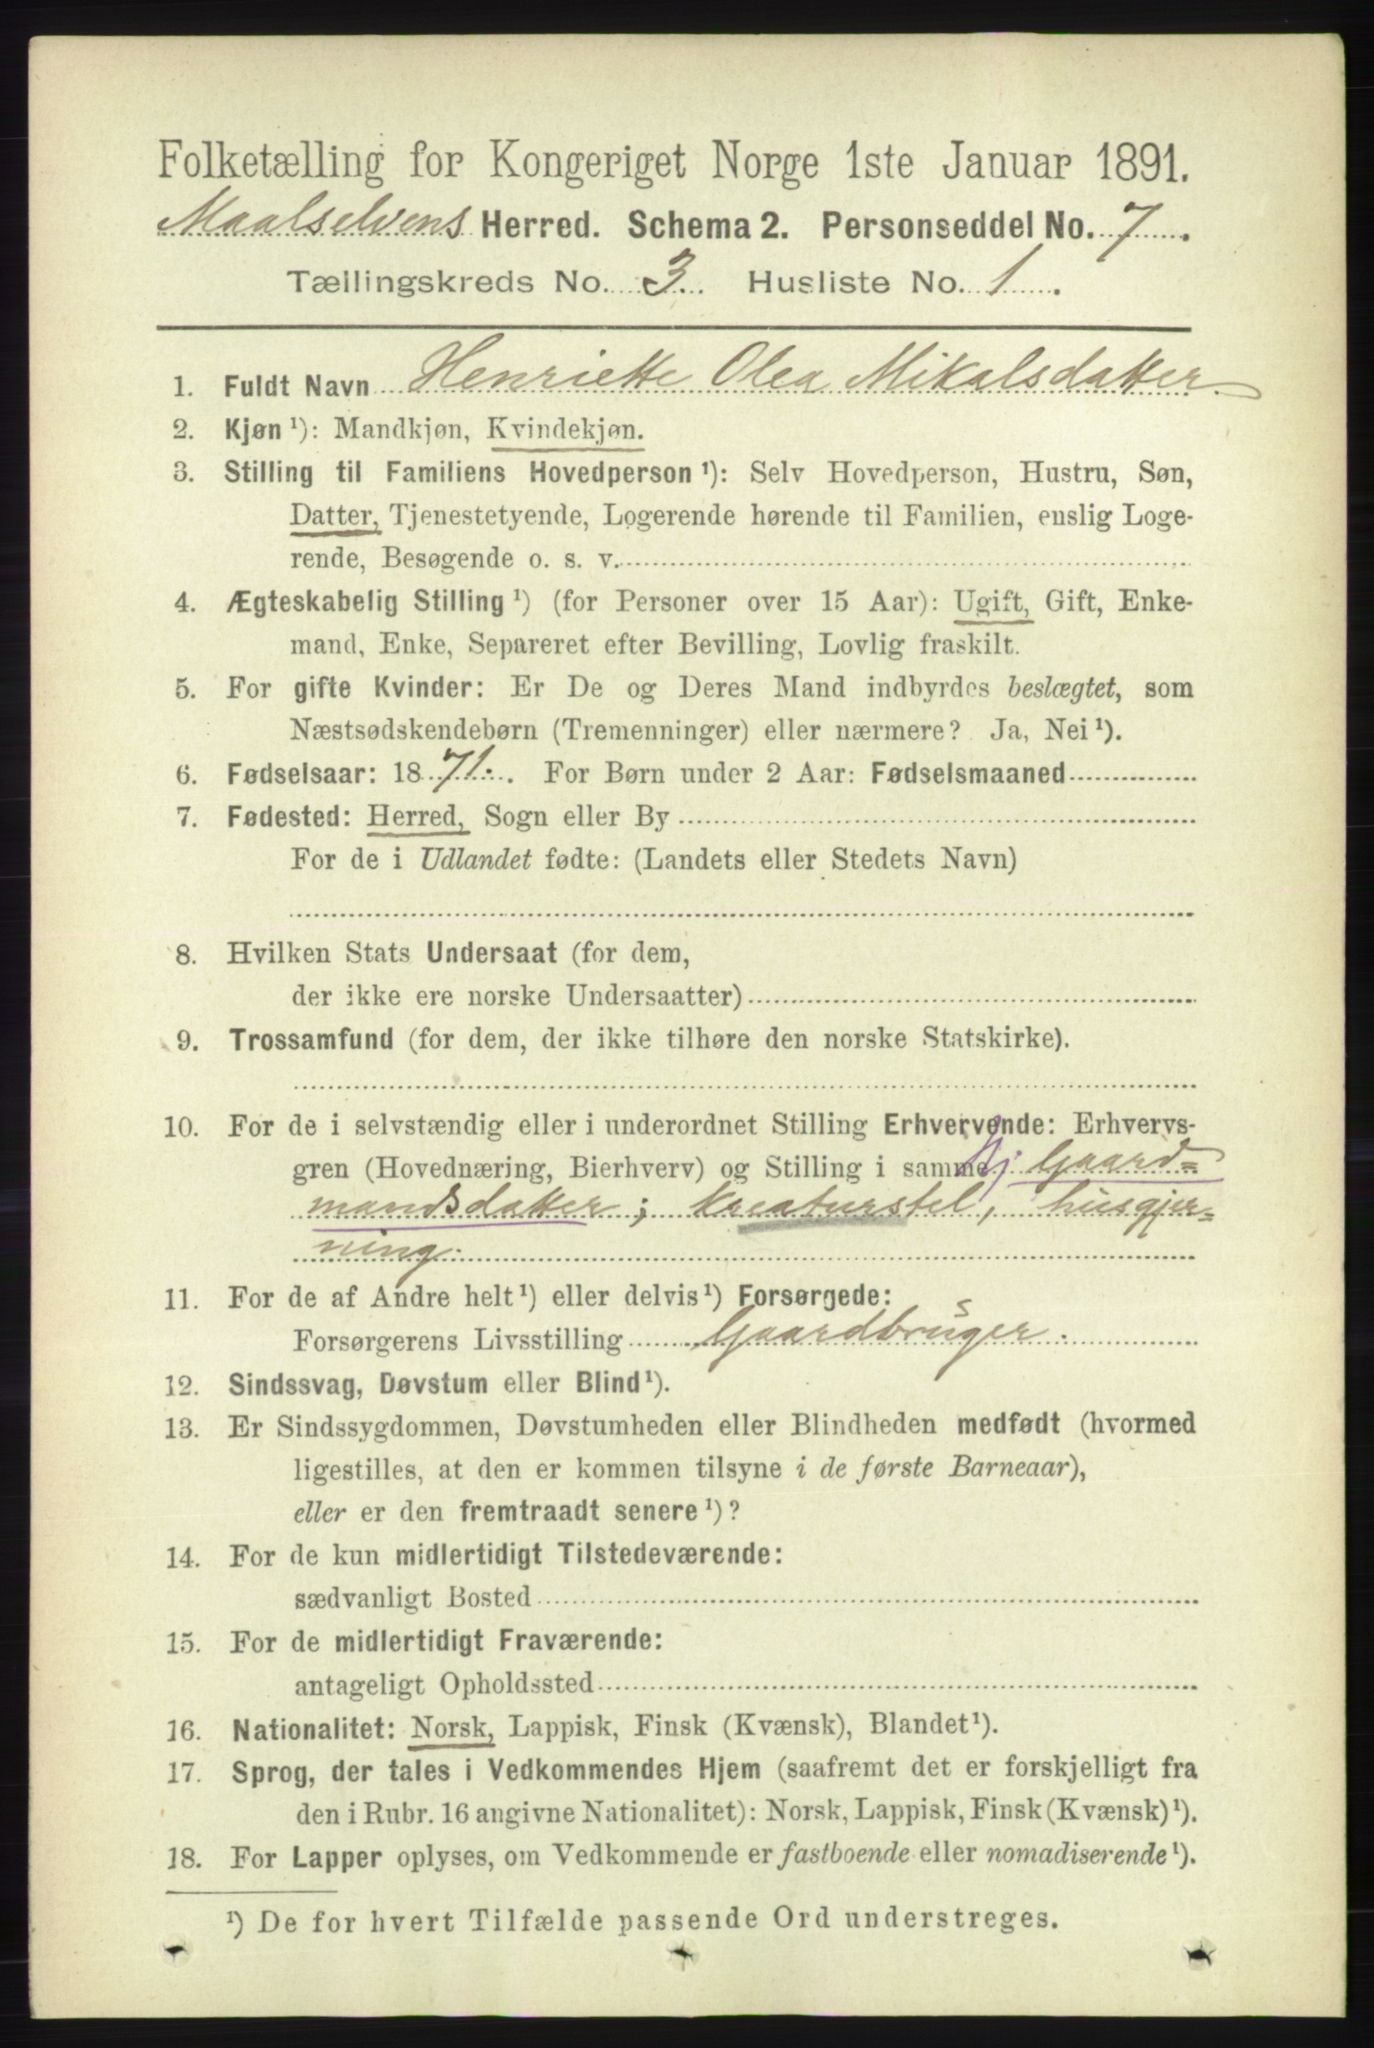 Folketælling for Kongeriget Norge 1ste Januar 1891.
Maalselvens Herred. Schema 2. Personseddel No. 7.
Tællingskreds No. 3. Husliste No. 1.
1. Fuldt Navn Henriette Olea Mikalsdatter.
2. Kjøn ¹): Mandkjøn, Kvindekjøn.
3. Stilling til Familiens Hovedperson ¹): Selv Hovedperson, Hustru, Søn,
Datter, Tjenestetyende, Logerende hørende til Familien, enslig Loge-
rende, Besøgende o. s. v.
4. Ægteskabelig Stilling ¹) (for Personer over 15 Aar): Ugift, Gift, Enke-
mand, Enke, Separeret efter Bevilling, Lovlig fraskilt.
5. For gifte Kvinder: Er De og Deres Mand indbyrdes beslægtet, som
Næstsødskendebørn (Tremenninger) eller nærmere? Ja, Nei ¹).
6. Fødselsaar: 1871. For Børn under 2 Aar: Fødselsmaaned
7. Fødested: Herred, Sogn eller By
For de i Udlandet fødte: (Landets eller Stedets Navn)
8. Hvilken Stats Undersaat (for dem,
der ikke ere norske Undersaatter)
9. Trossamfund (for dem, der ikke tilhøre den norske Statskirke).
10. For de i selvstændig eller i underordnet Stilling Erhvervende: Erhvervs-
gren (Hovednæring, Bierhverv) og Stilling i samme Gaard=
mandsdatter; kreaturstel, husgjer=
ning.
11. For de af Andre helt ¹) eller delvis ¹) Forsørgede:
Forsørgerens Livsstilling Gaardbruger.
12. Sindssvag, Døvstum eller Blind ¹).
13. Er Sindssygdommen, Døvstumheden eller Blindheden medfødt (hvormed
ligestilles, at den er kommen tilsyne i de første Barneaar),
eller er den fremtraadt senere ¹)?
14. For de kun midlertidigt Tilstedeværende:
sædvanligt Bosted
15. For de midlertidigt Fraværende:
antageligt Opholdssted
16. Nationalitet: Norsk, Lappisk, Finsk (Kvænsk), Blandet ¹).
17. Sprog, der tales i Vedkommendes Hjem (saafremt det er forskjelligt fra
den i Rubr. 16 angivne Nationalitet): Norsk, Lappisk, Finsk (Kvænsk) ¹).
18. For Lapper oplyses, om Vedkommende er fastboende eller nomadiserende ¹).
¹) De for hvert Tilfælde passende Ord understreges.